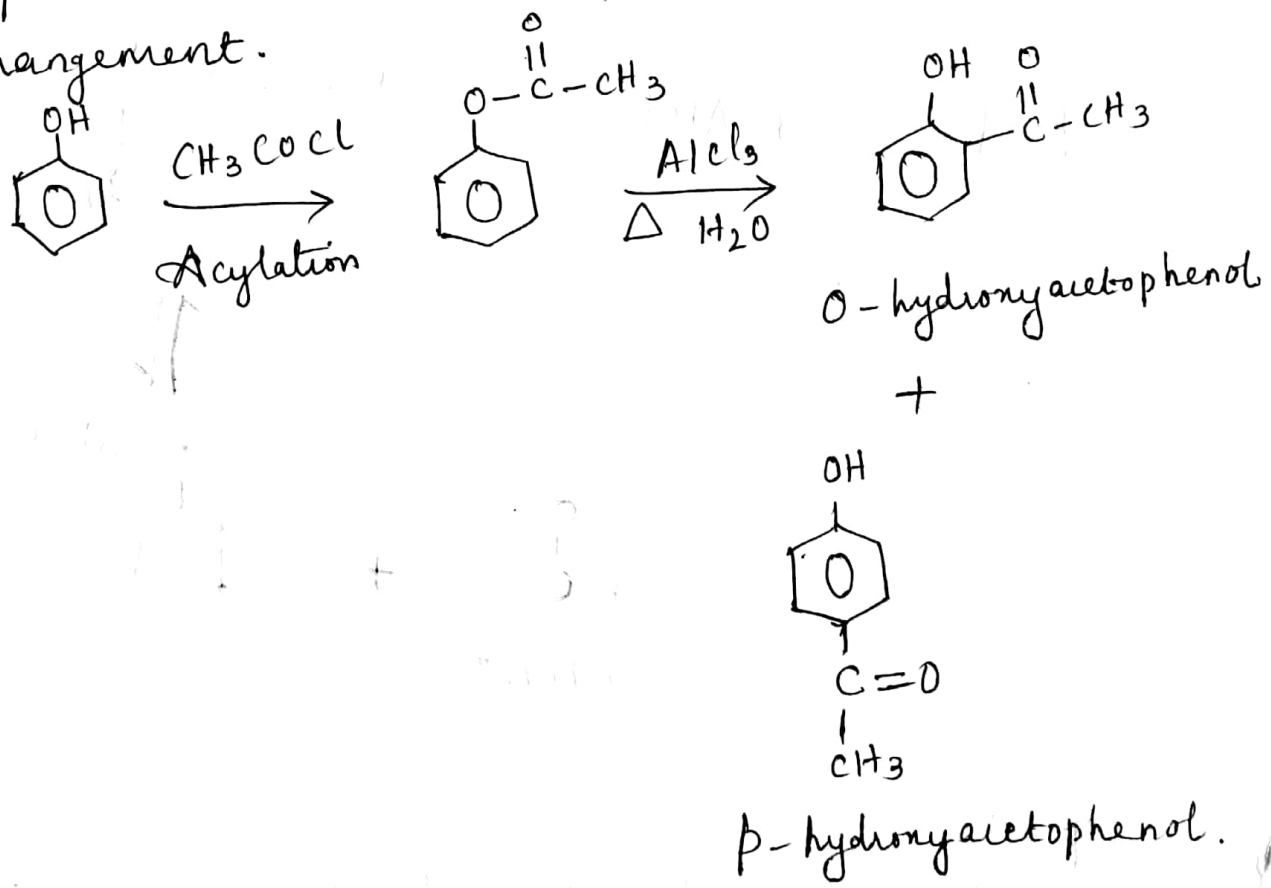 angement.
OH
CH3COCl
Acylation
O
||
O-C-CH3
AlCl3
Δ H2O
OH O
||
C-CH3
O-hydroxyacetophenol
+
OH
C=O
|
CH3
p-hydroxyacetophenol.